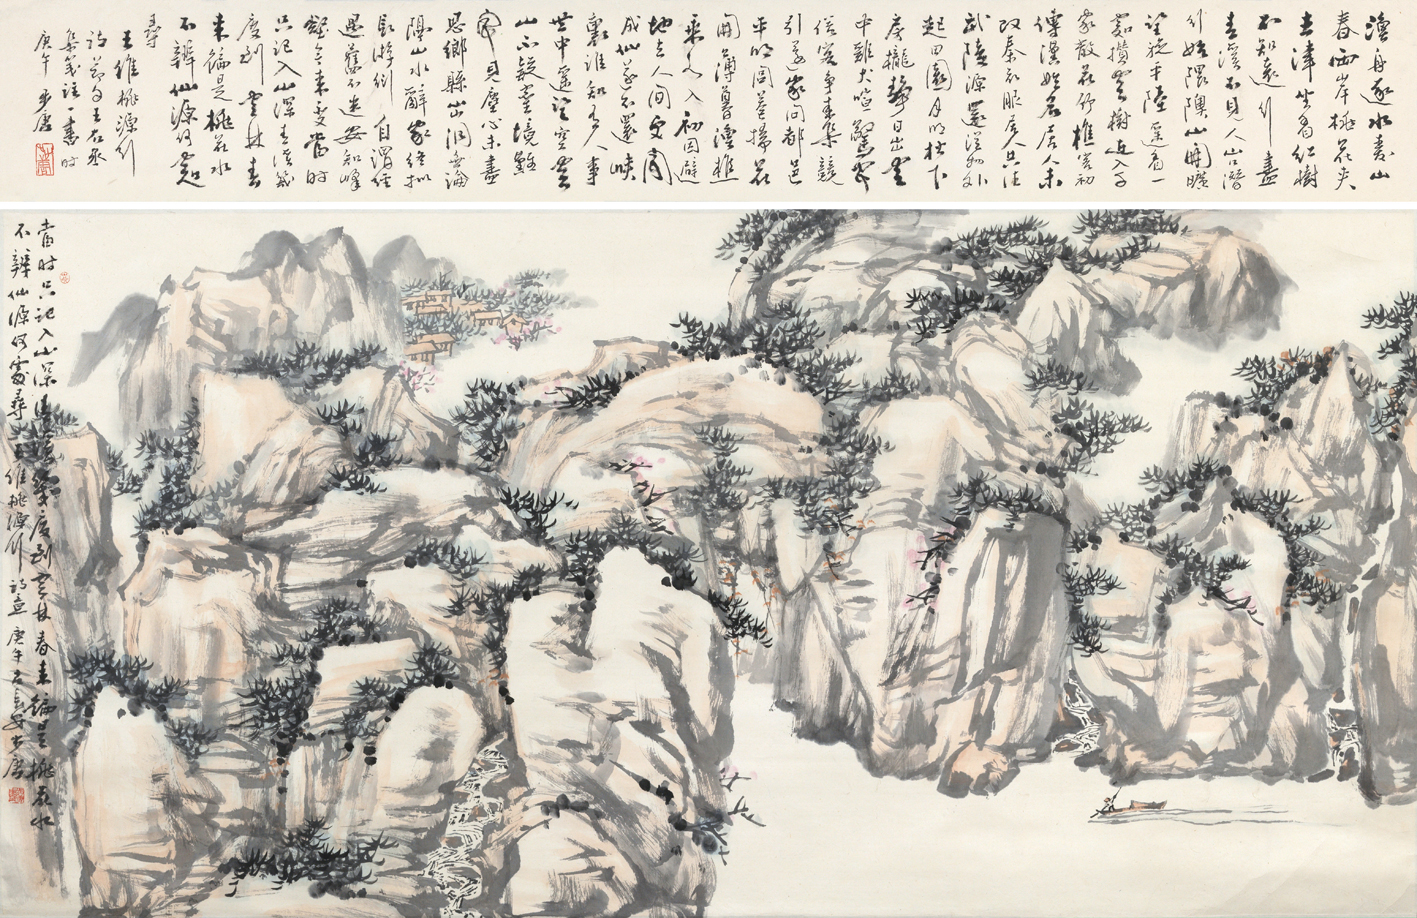 漁舟逐水愛山
春兩岸桃花夾
去津坐看紅樹
不知遠行盡
青溪不見人山口潛
行始隈隩山開曠
望旋平陸遙看一
處攢雲樹近入千
家散花竹樵客初
傳漢姓名居人未
改秦衣服居人共住
武陵源還從物外
起田園月明松下
房櫳靜日出雲
中雞犬喧驚聞
俗客爭來集競
引還家問都邑
平明閭巷掃花
開薄暮漁樵
乘水入初因避
地去人間更聞
成仙遂不還峽
裏誰知有人事
世中遙望空雲
山不疑靈境難
聞見塵心未盡
思鄉縣出洞無論
隔山水辭家終擬
長游衍自謂經
過舊不迷安知峰
壑今來變當時
只記入山深青溪幾
度到雲林春
來遍是桃花水
不辨仙源何處
尋
王維桃源行
詩句王右丞
集箋註一書時
庚午步唐
當時只記入山深清溪幾度到雲林春來遍是桃花水
不辨仙源何處尋王維桃源行詩意庚午步唐